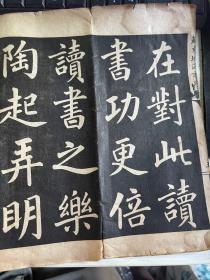 在對此讀
書功更倍
讀書之樂
陶起弄明